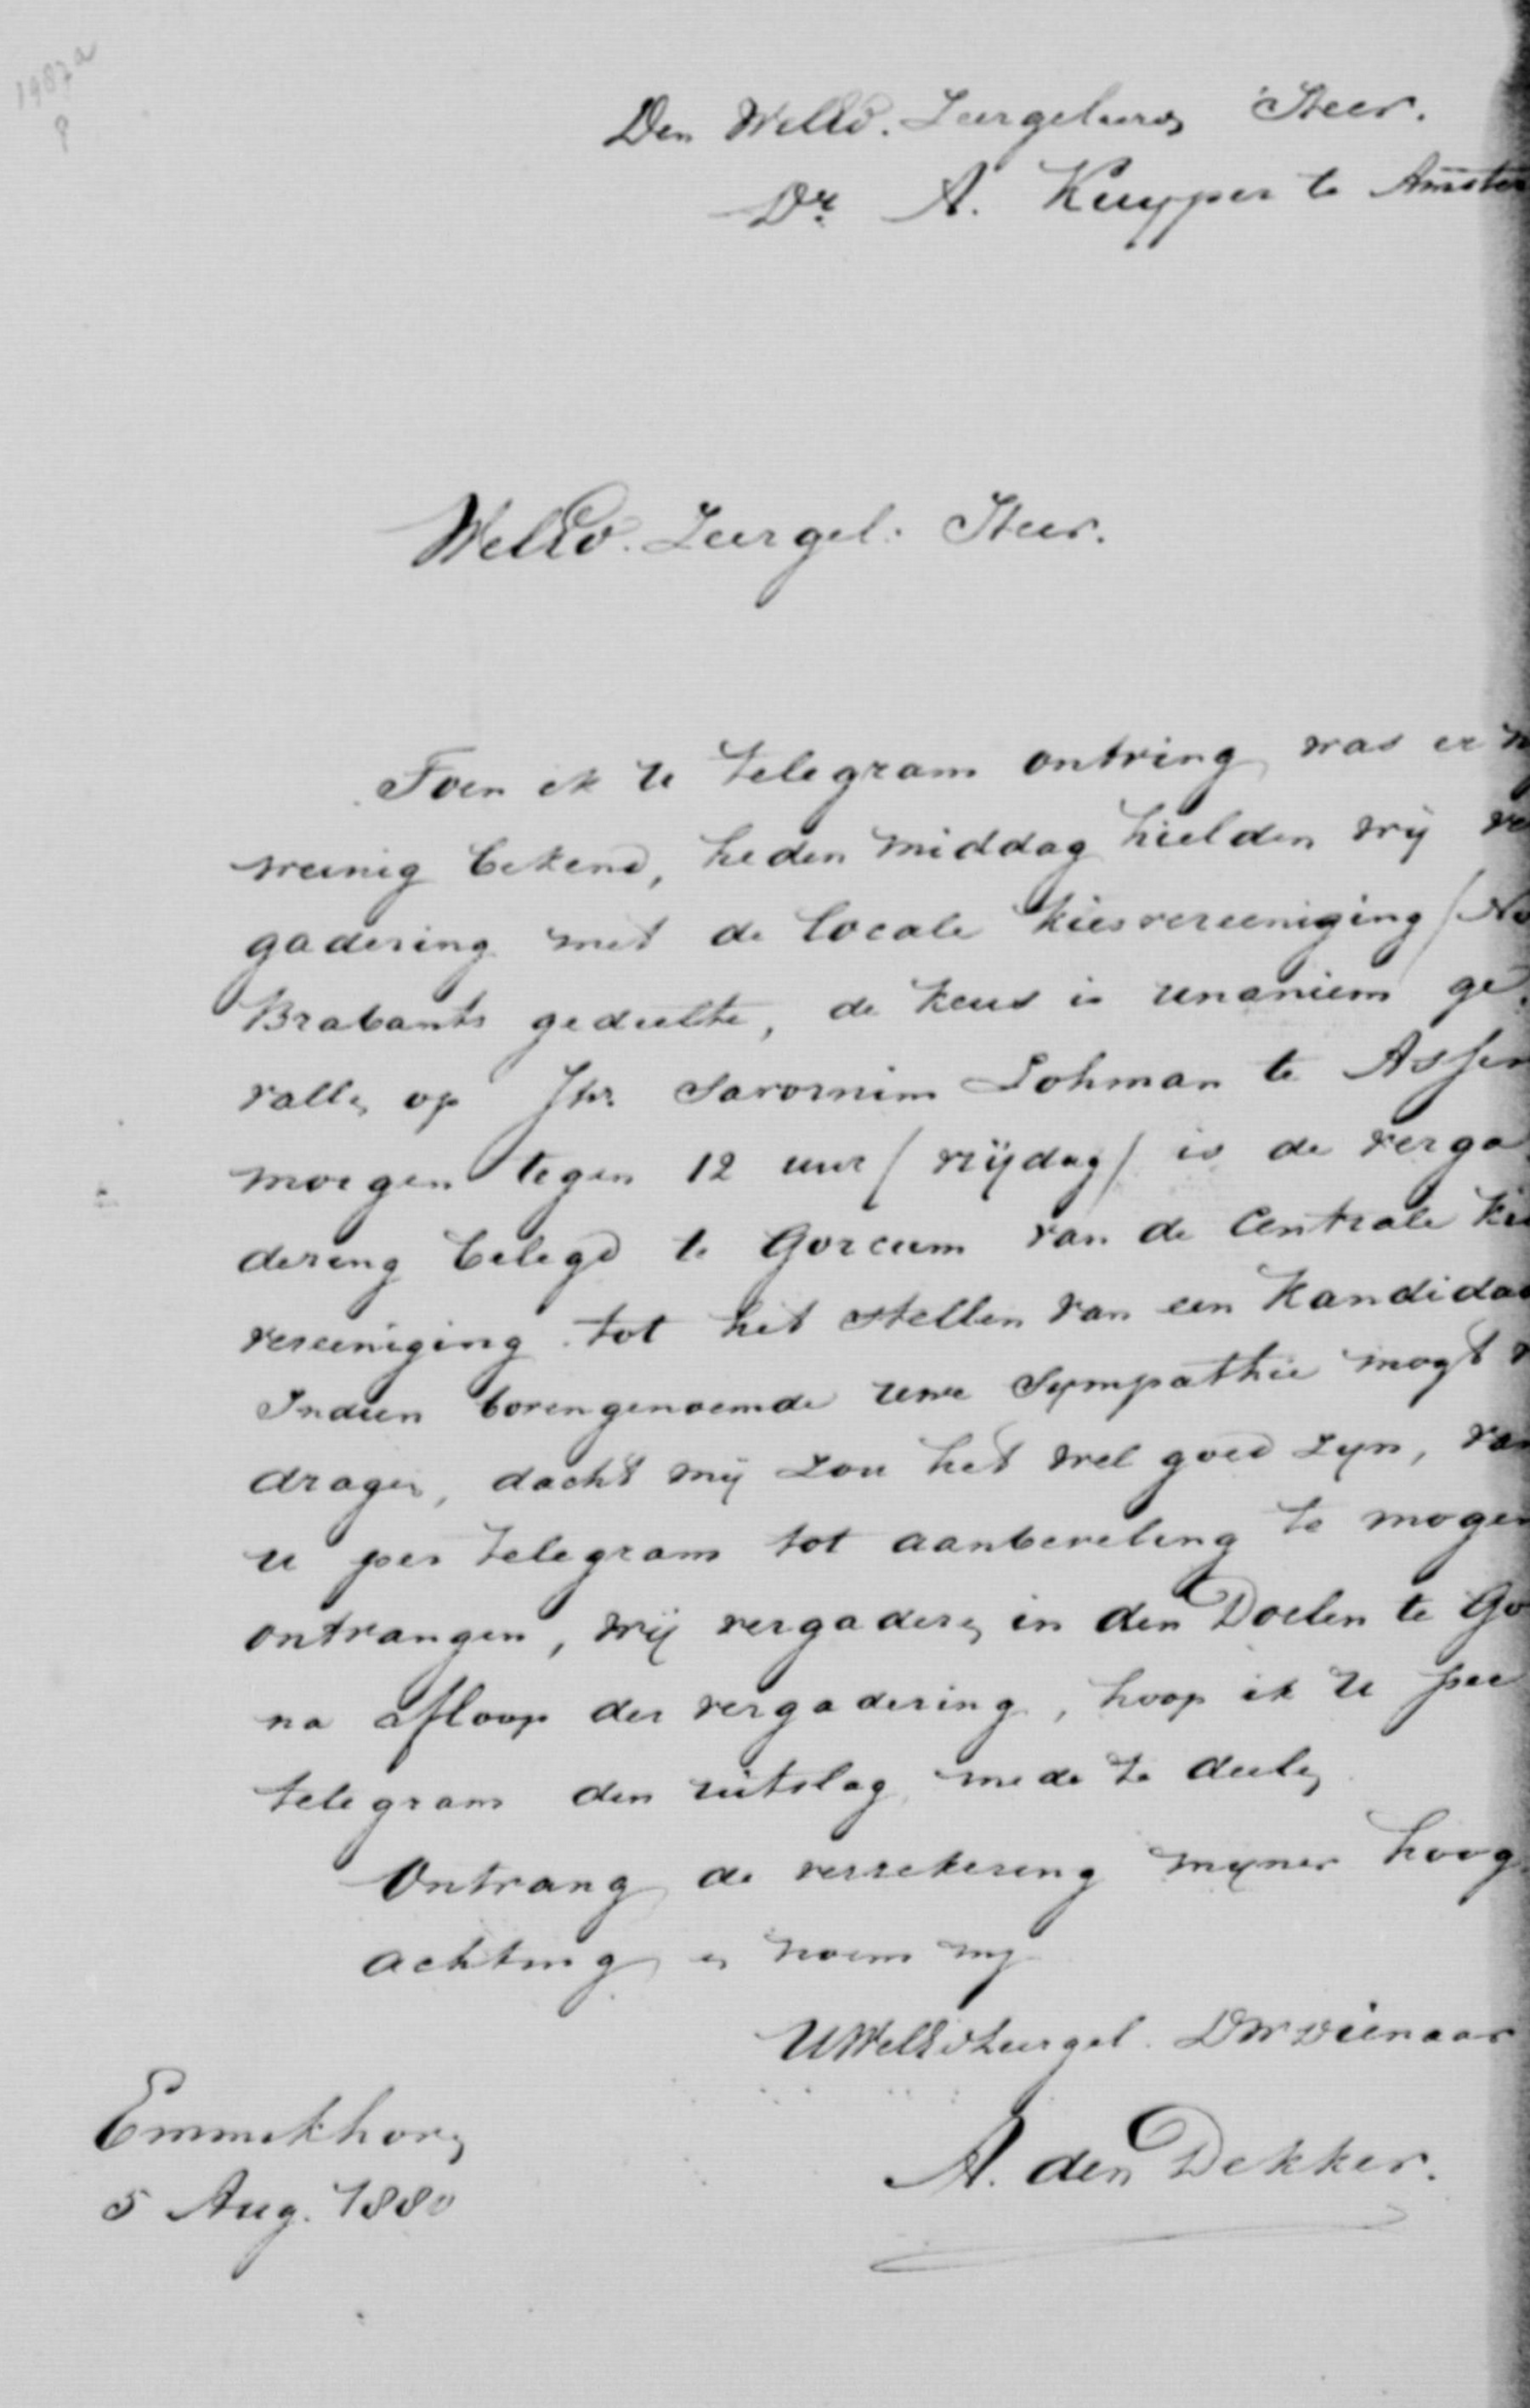 1987a
8
Den WelEd. Zeergeleerden Heer.
Dr. A. Kuyper te Amster
WelEd. Zeergel. Heer.
Toen ik U telegram ontving was er n
weinig bekend, heden middag hielden wij ve
gadering met de locale kiesvereeniging (No
Brabants gedeelte, de keus is unaniem ge
vallen op Jhr. Savornim Lohman te Assen
morgen tegen 12 uur (vrijdag) is de verga
dering belegd te Gorcum van de Centrale kie
vereeniging tot het stellen van een kandidaa
Indien bovengenoemde uwe Sympathie mogt
dragen, dacht mij zou het wel goed zyn, van
u per telegram tot aanbeveling te mogen
ontvangen, wij vergaderen in den Doelen te Go
na afloop der vergadering, hoop ik U per
telegram den uitslag mede te deelen
Ontvang de verzekering myner hoog
achting en noem my
UWelEdZeergel. DWDienaar
A. den Dekker.
Emmikhoven
5 Aug. 1880